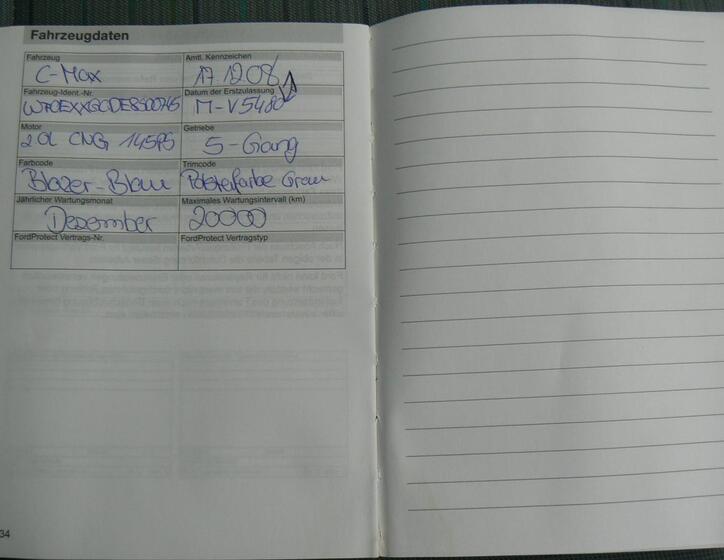 Fahrzeugdaten
Fahrzeug Amtl. Kennzeichen
C-Max 17 12 08
Fahrzeug-Ident.-Nr. Datum der Erstzulassung
M-V5480
Motor Getriebe
2 0L CNG 145PS 5-Gang
Farbcode Trimcode
Blazer-Blau Polsterfarbe Grau
Jährlicher Wartungsmonat Maximales Wartungsintervall (km)
Dezember 20000
FordProtect Vertrags-Nr. FordProtect Vertragstyp
34